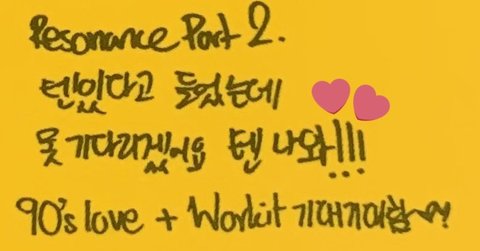 Resonance Part 2.
텐있다고 들었는데
못 기다리겠어요 텐 나와!!!
90's love + Workit 기대기대함~!